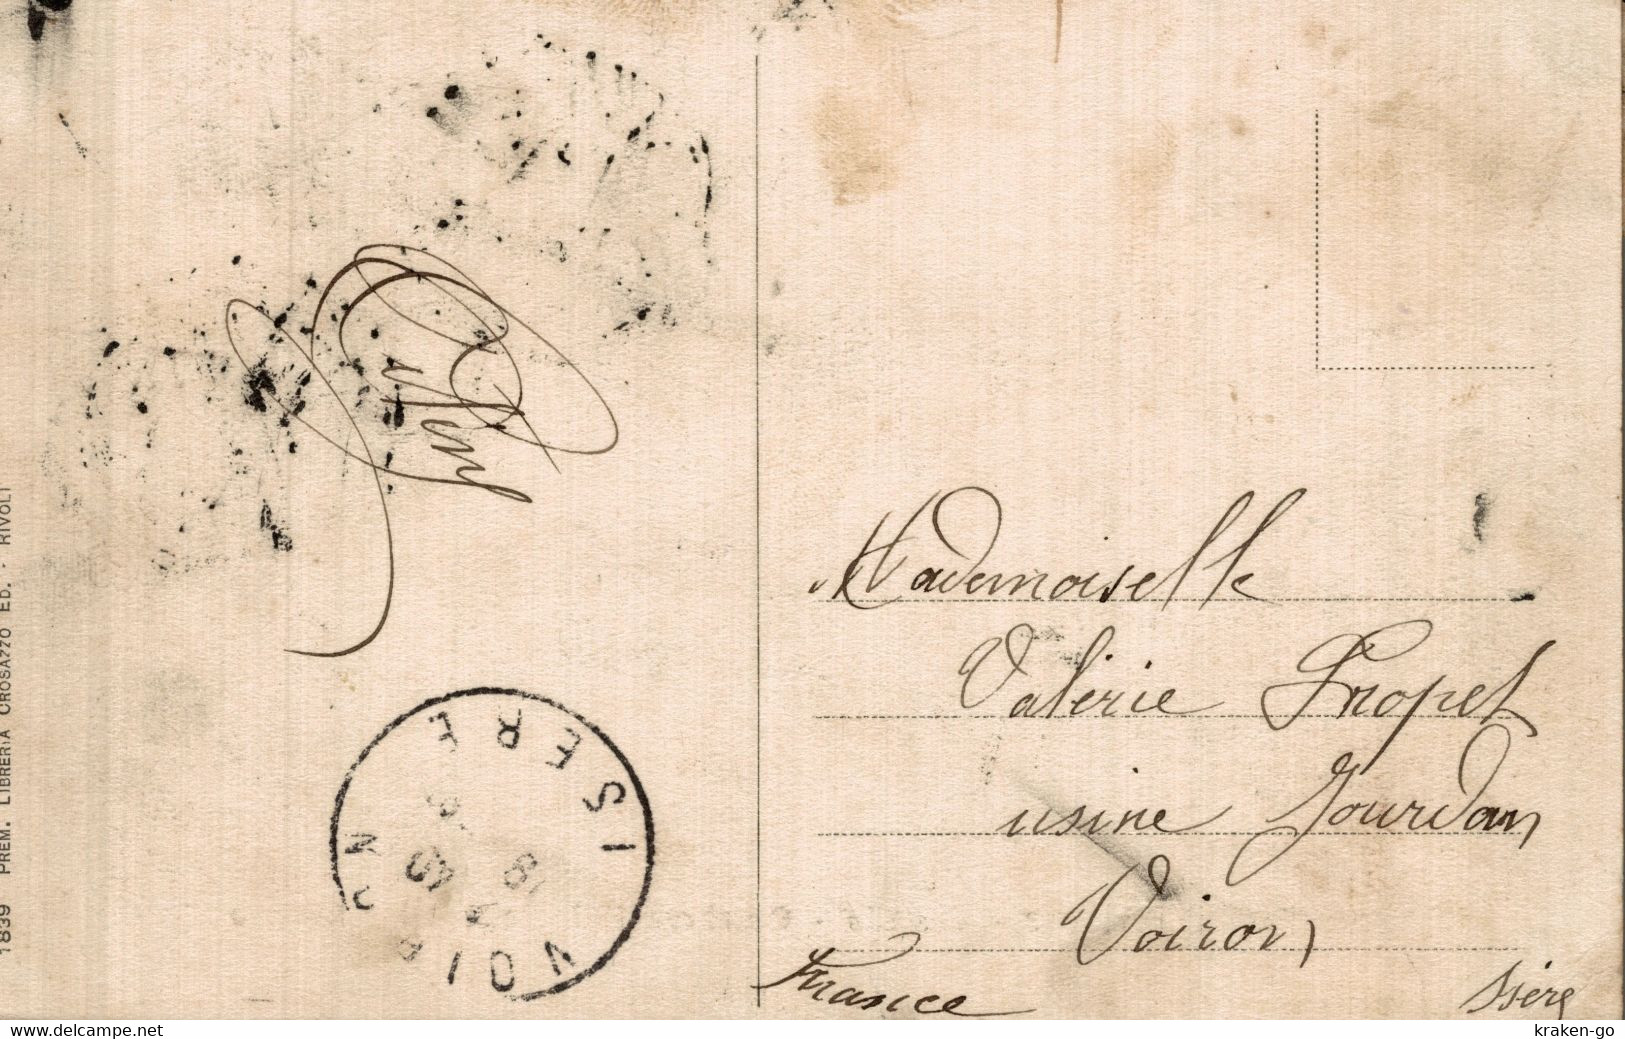 1839 PREM. LIBRERIA CROSAZZO ED. - RIVOLI
ISERE
Mademoiselle
Valérie Tropet
usine Jourdan
Voiron
France
Isère
www.delcampe.net
kraken-go